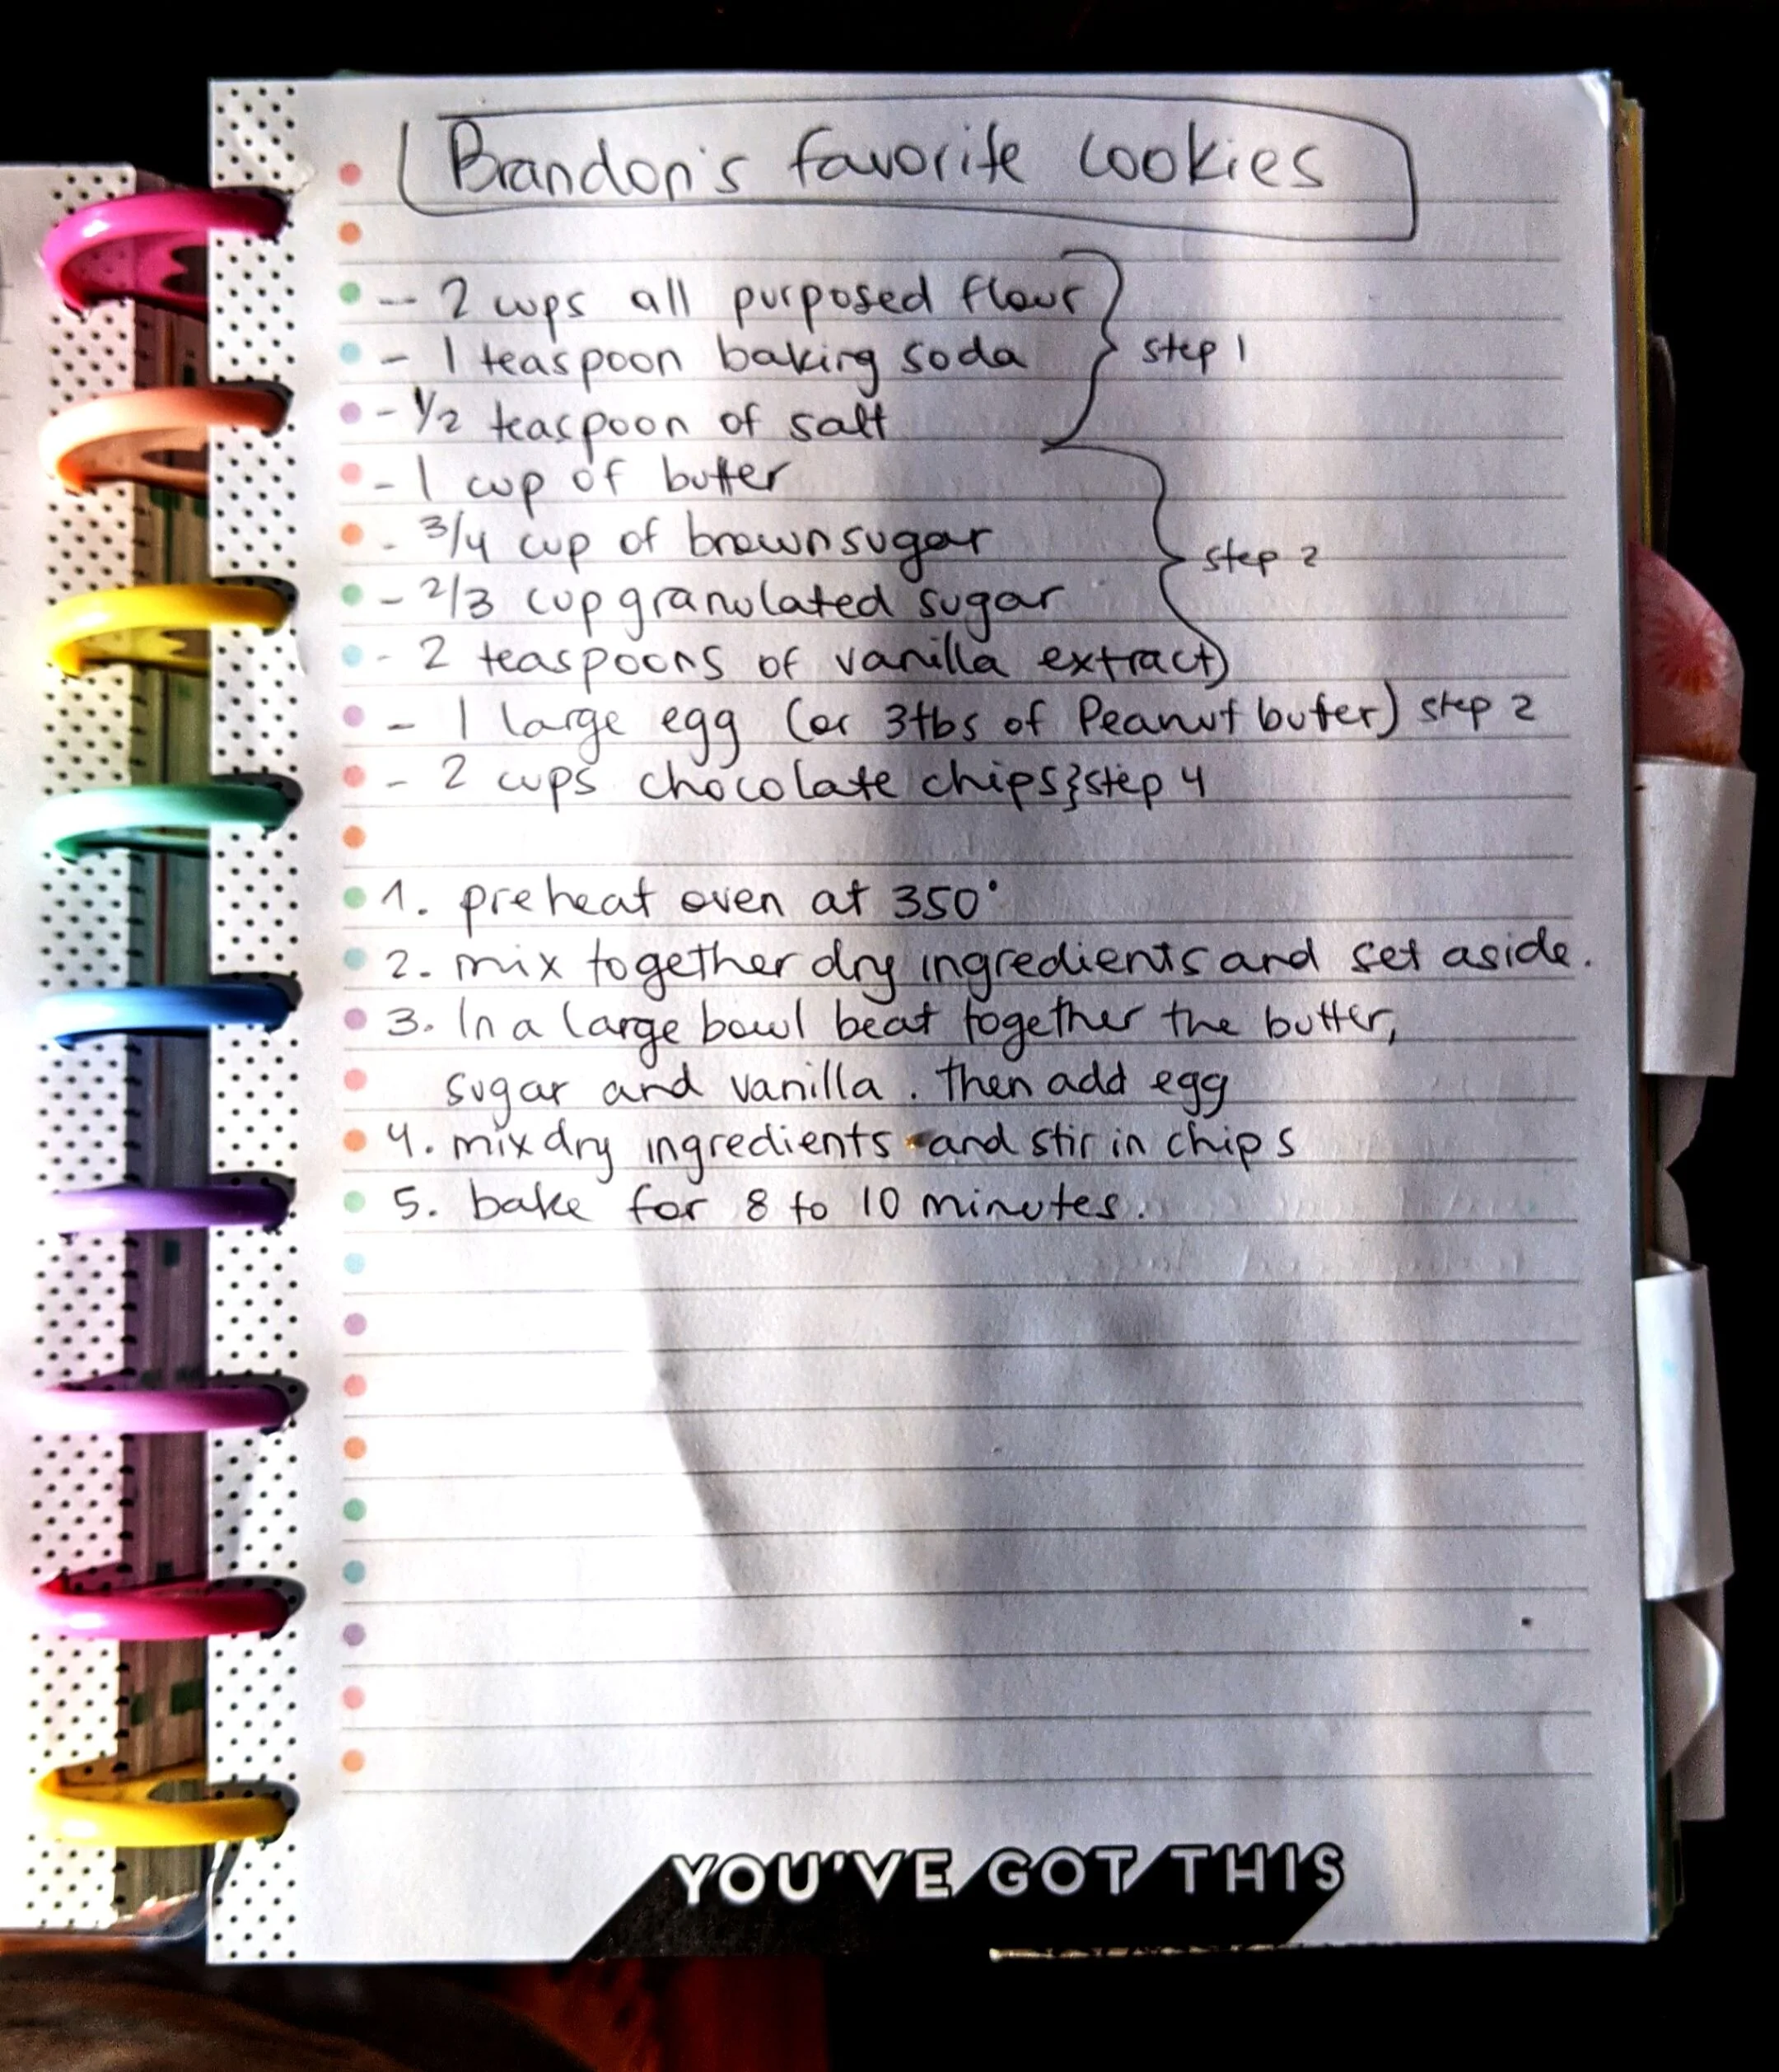 Brandon's favorite cookies
- 2 cups all purposed flour
- 1 teaspoon baking soda } step 1
- 1/2 teaspoon of salt
- 1 cup of butter
- 3/4 cup of brown sugar } step 2
- 2/3 cup granulated sugar
- 2 teaspoons of vanilla extract
- 1 large egg (or 3tbs of Peanut buter) step 2
- 2 cups chocolate chips } step 4
1. preheat oven at 350°
2. mix together dry ingredients and set aside.
3. In a large bowl beat together the butter,
sugar and vanilla. then add egg
4. mix dry ingredients and stir in chips
5. bake for 8 to 10 minutes.
YOU'VE GOT THIS